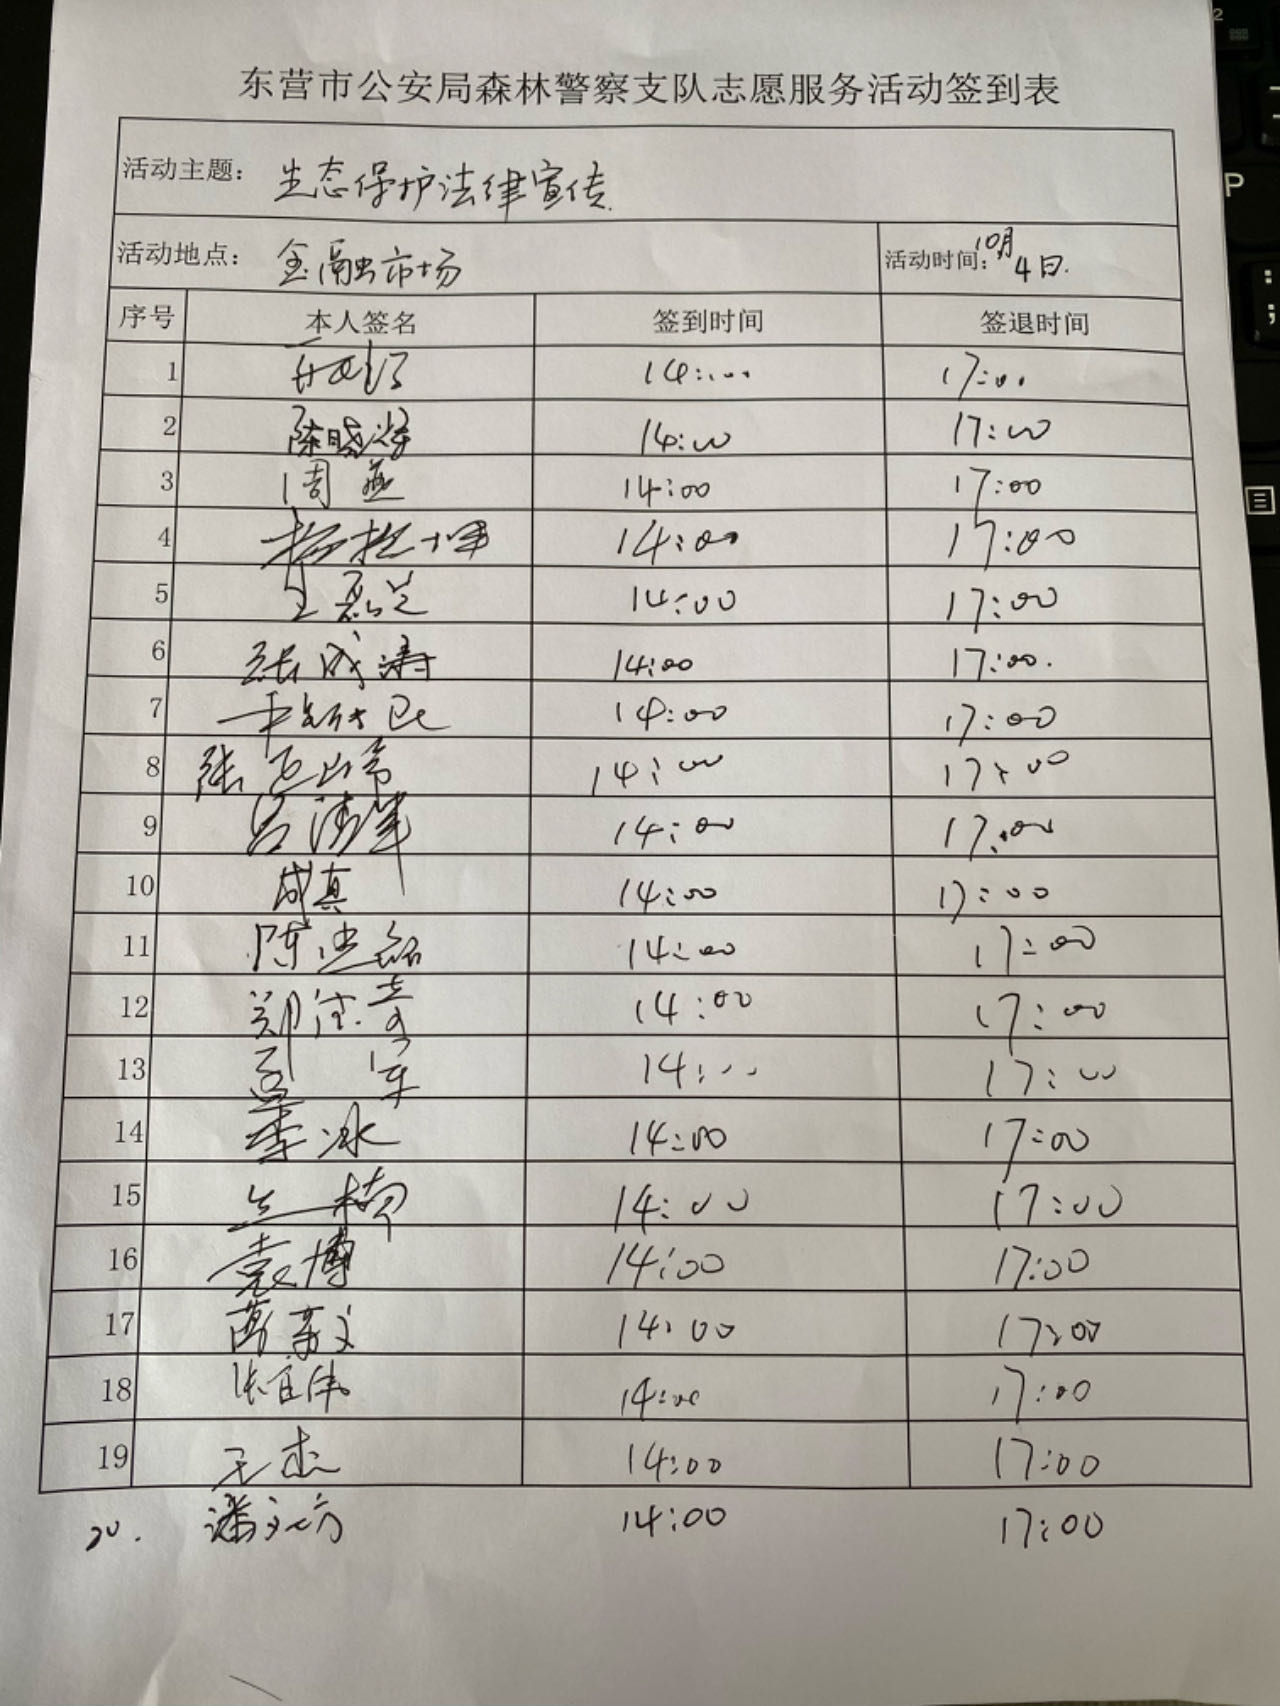 东营市公安局森林警察支队志愿服务活动签到表
活动主题： 生态保护法律宣传
活动地点： 金融市场 活动时间： 10月4日.
序号 本人签名 签到时间 签退时间
1 14:00 17:00
2 陈晓 14:00 17:00
3 周燕 14:00 17:00
4 14:00 17:00
5 王磊 14:00 17:00
6 张成涛 14:00 17:00.
7 14:00 17:00
8 张 14:00 17:00
9 吕清 14:00 17:00
10 成真 14:00 17:00
11 陈 14:00 17:00
12 郑 14:00 17:00
13 军 14:00 17:00
14 李冰 14:00 17:00
15 兰楠 14:00 17:00
16 袁博 14:00 17:00
17 14:00 17:00
18 张 伟 14:00 17:00
19 王杰 14:00 17:00
20. 潘文方 14:00 17:00